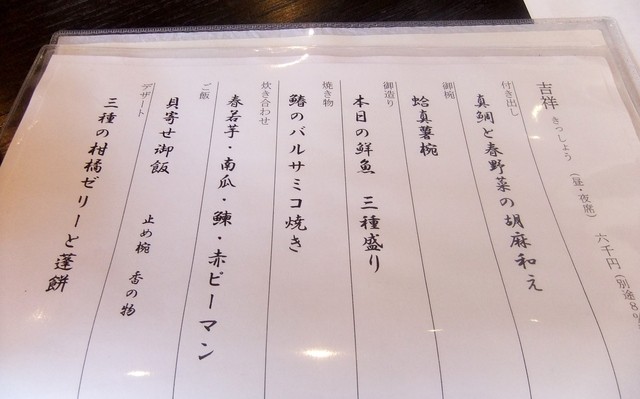 吉祥 きっしょう (昼・夜席) 六千円(別途8%
付き出し
真鯛と春野菜の胡麻和え
御椀
蛤真薯椀
御造り
本日の鮮魚 三種盛り
焼き物
鰆のバルサミコ焼き
炊き合わせ
春若芋・南瓜・鰊・赤ピーマン
ご飯
貝寄せ御飯
止め椀 香の物
デザート
三種の柑橘ゼリーと蓬餅